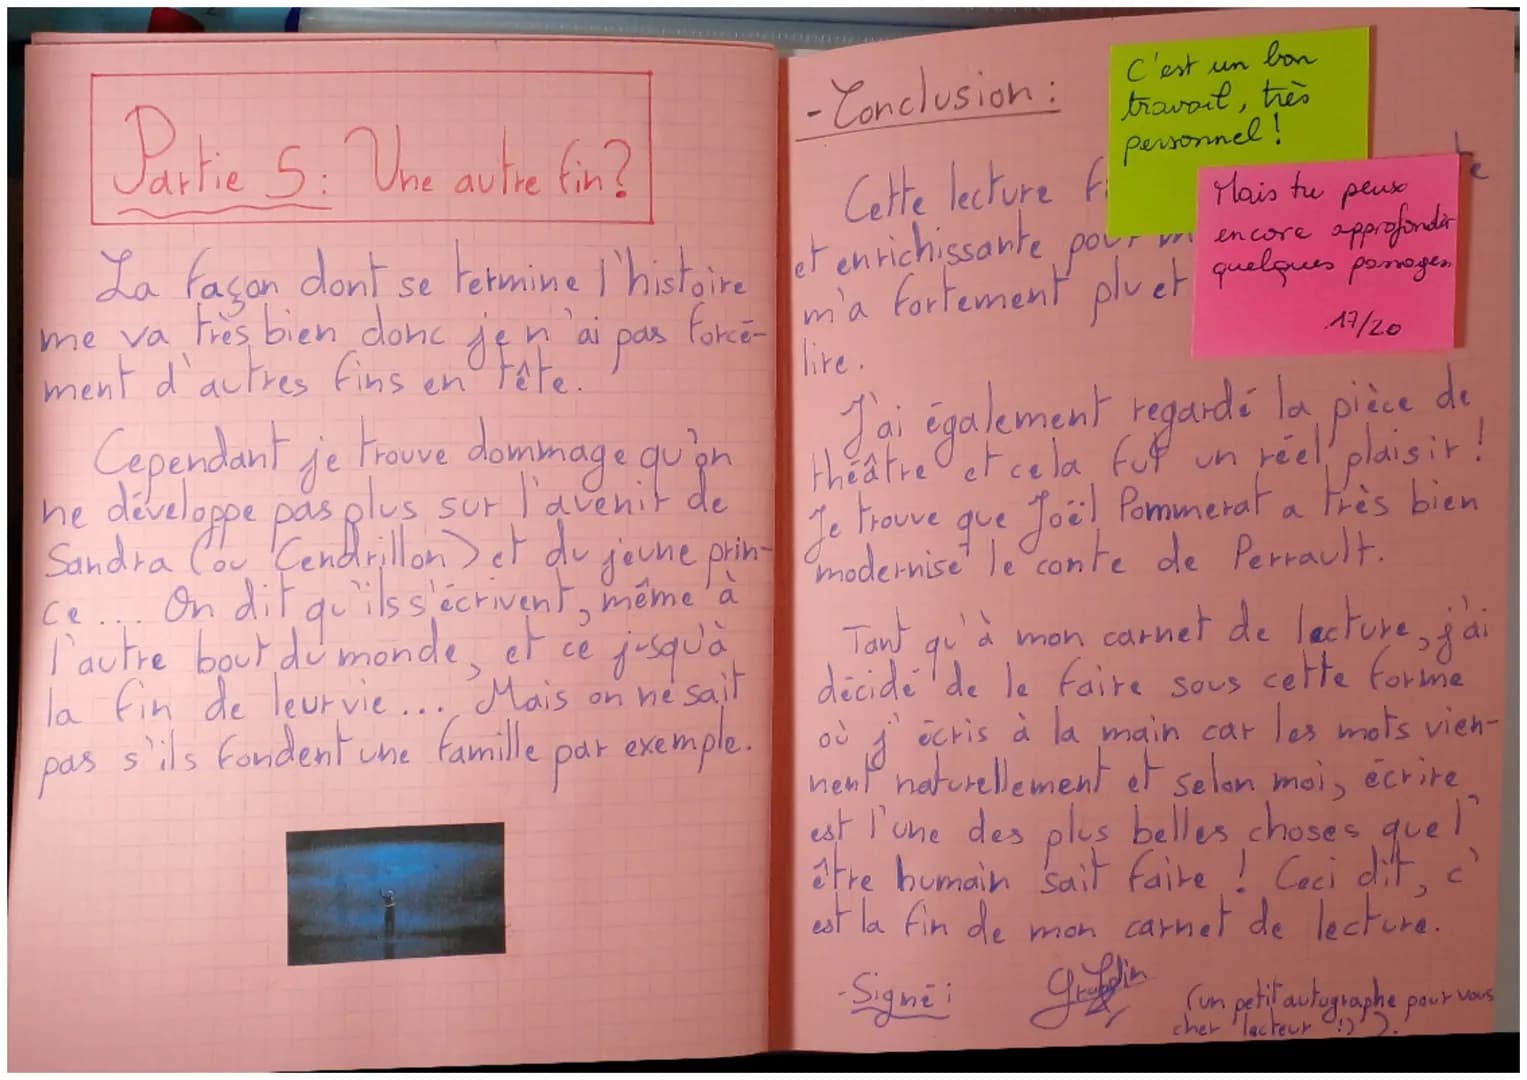 Partie 5 : Une autre fin ?
La façon dont se termine l'histoire
me va très bien donc je n'ai pas forcé-
ment d'autres fins en tête.
Cependant je trouve dommage qu'on
ne développe pas plus sur l'avenir de
Sandra (ou Cendrillon) et du jeune prin-
ce... On dit qu'ils s'écrivent, même à
l'autre bout du monde, et ce jusqu'à
la fin de leur vie... Mais on ne sait
pas s'ils fondent une famille par exemple.
- Conclusion :
Cette lecture
et enrichissante pour
m'a fortement plu et
lire.
J'ai également regardé la pièce de
théâtre et cela fut un réel plaisir !
Je trouve que Joël Pommerat a très bien
modernisé le conte de Perrault.
Tant qu'à mon carnet de lecture, j'ai
décidé de le faire sous cette forme
où j'écris à la main car les mots vien-
nent naturellement et selon moi, écrire
est l'une des plus belles choses que l'
être humain sait faire ! Ceci dit, c'
est la fin de mon carnet de lecture.
- Signé :
(un petit autographe pour vous
cher lecteur :) ).
C'est un bon
travail, très
personnel !
Mais tu peux
encore approfondir
quelques passages
17/20